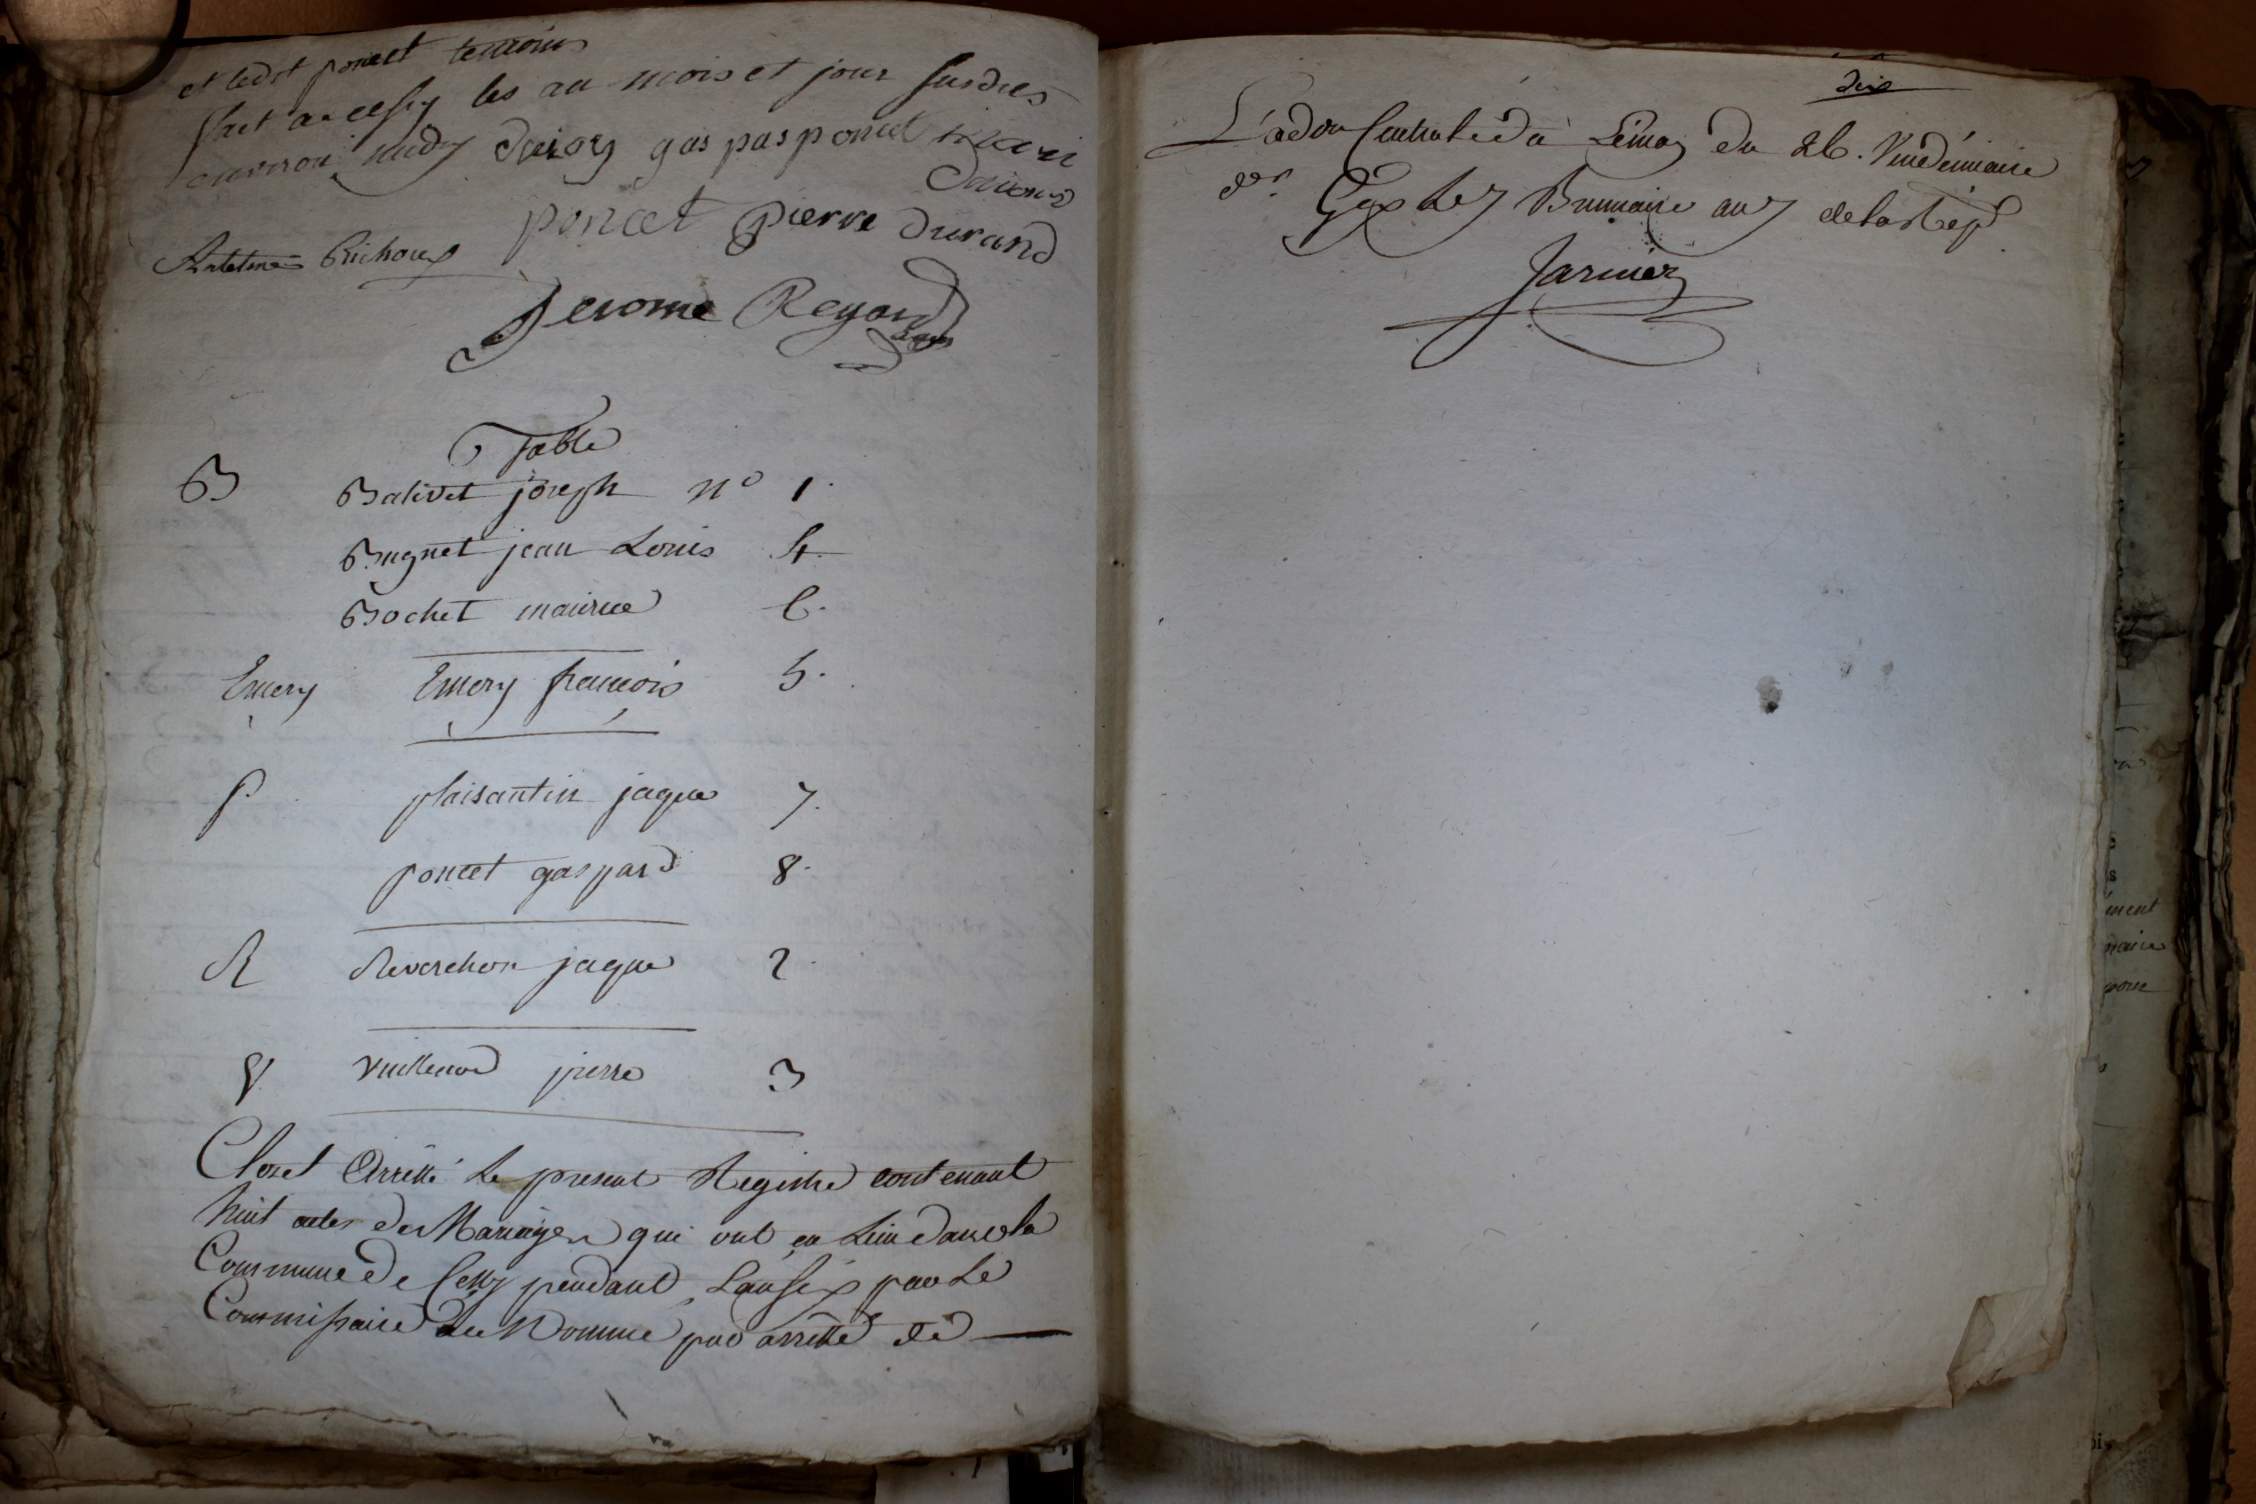 et ledt poncet temoins
fait a cessy les an mois et jour susdits
environ midy gaspas poncet
poncet pierre durand
Antelme
Jerome Regard
Table
B Balivet joseph n° 1.
Bugnet jean Louis 4.
Bochet maurice 6.
Emery Emery francois 5.
P plaisantin jaque 7.
poncet gaspard 8.
R Reverchon jaque 2.
V Vuillemod pierre 3
Clos et Arretté le present Registre contenant
huit actes de Mariages qui ont eu Lieu dans la
Commune de Cessy pendant L'an six par le
Commissaire Nommé par arretté de
dix
L'adon Centrale de du 26. Vendémiaire
dr. Gex le 7 Brumaire an 7 de la Rep
Jarnier
ément
maire
pour